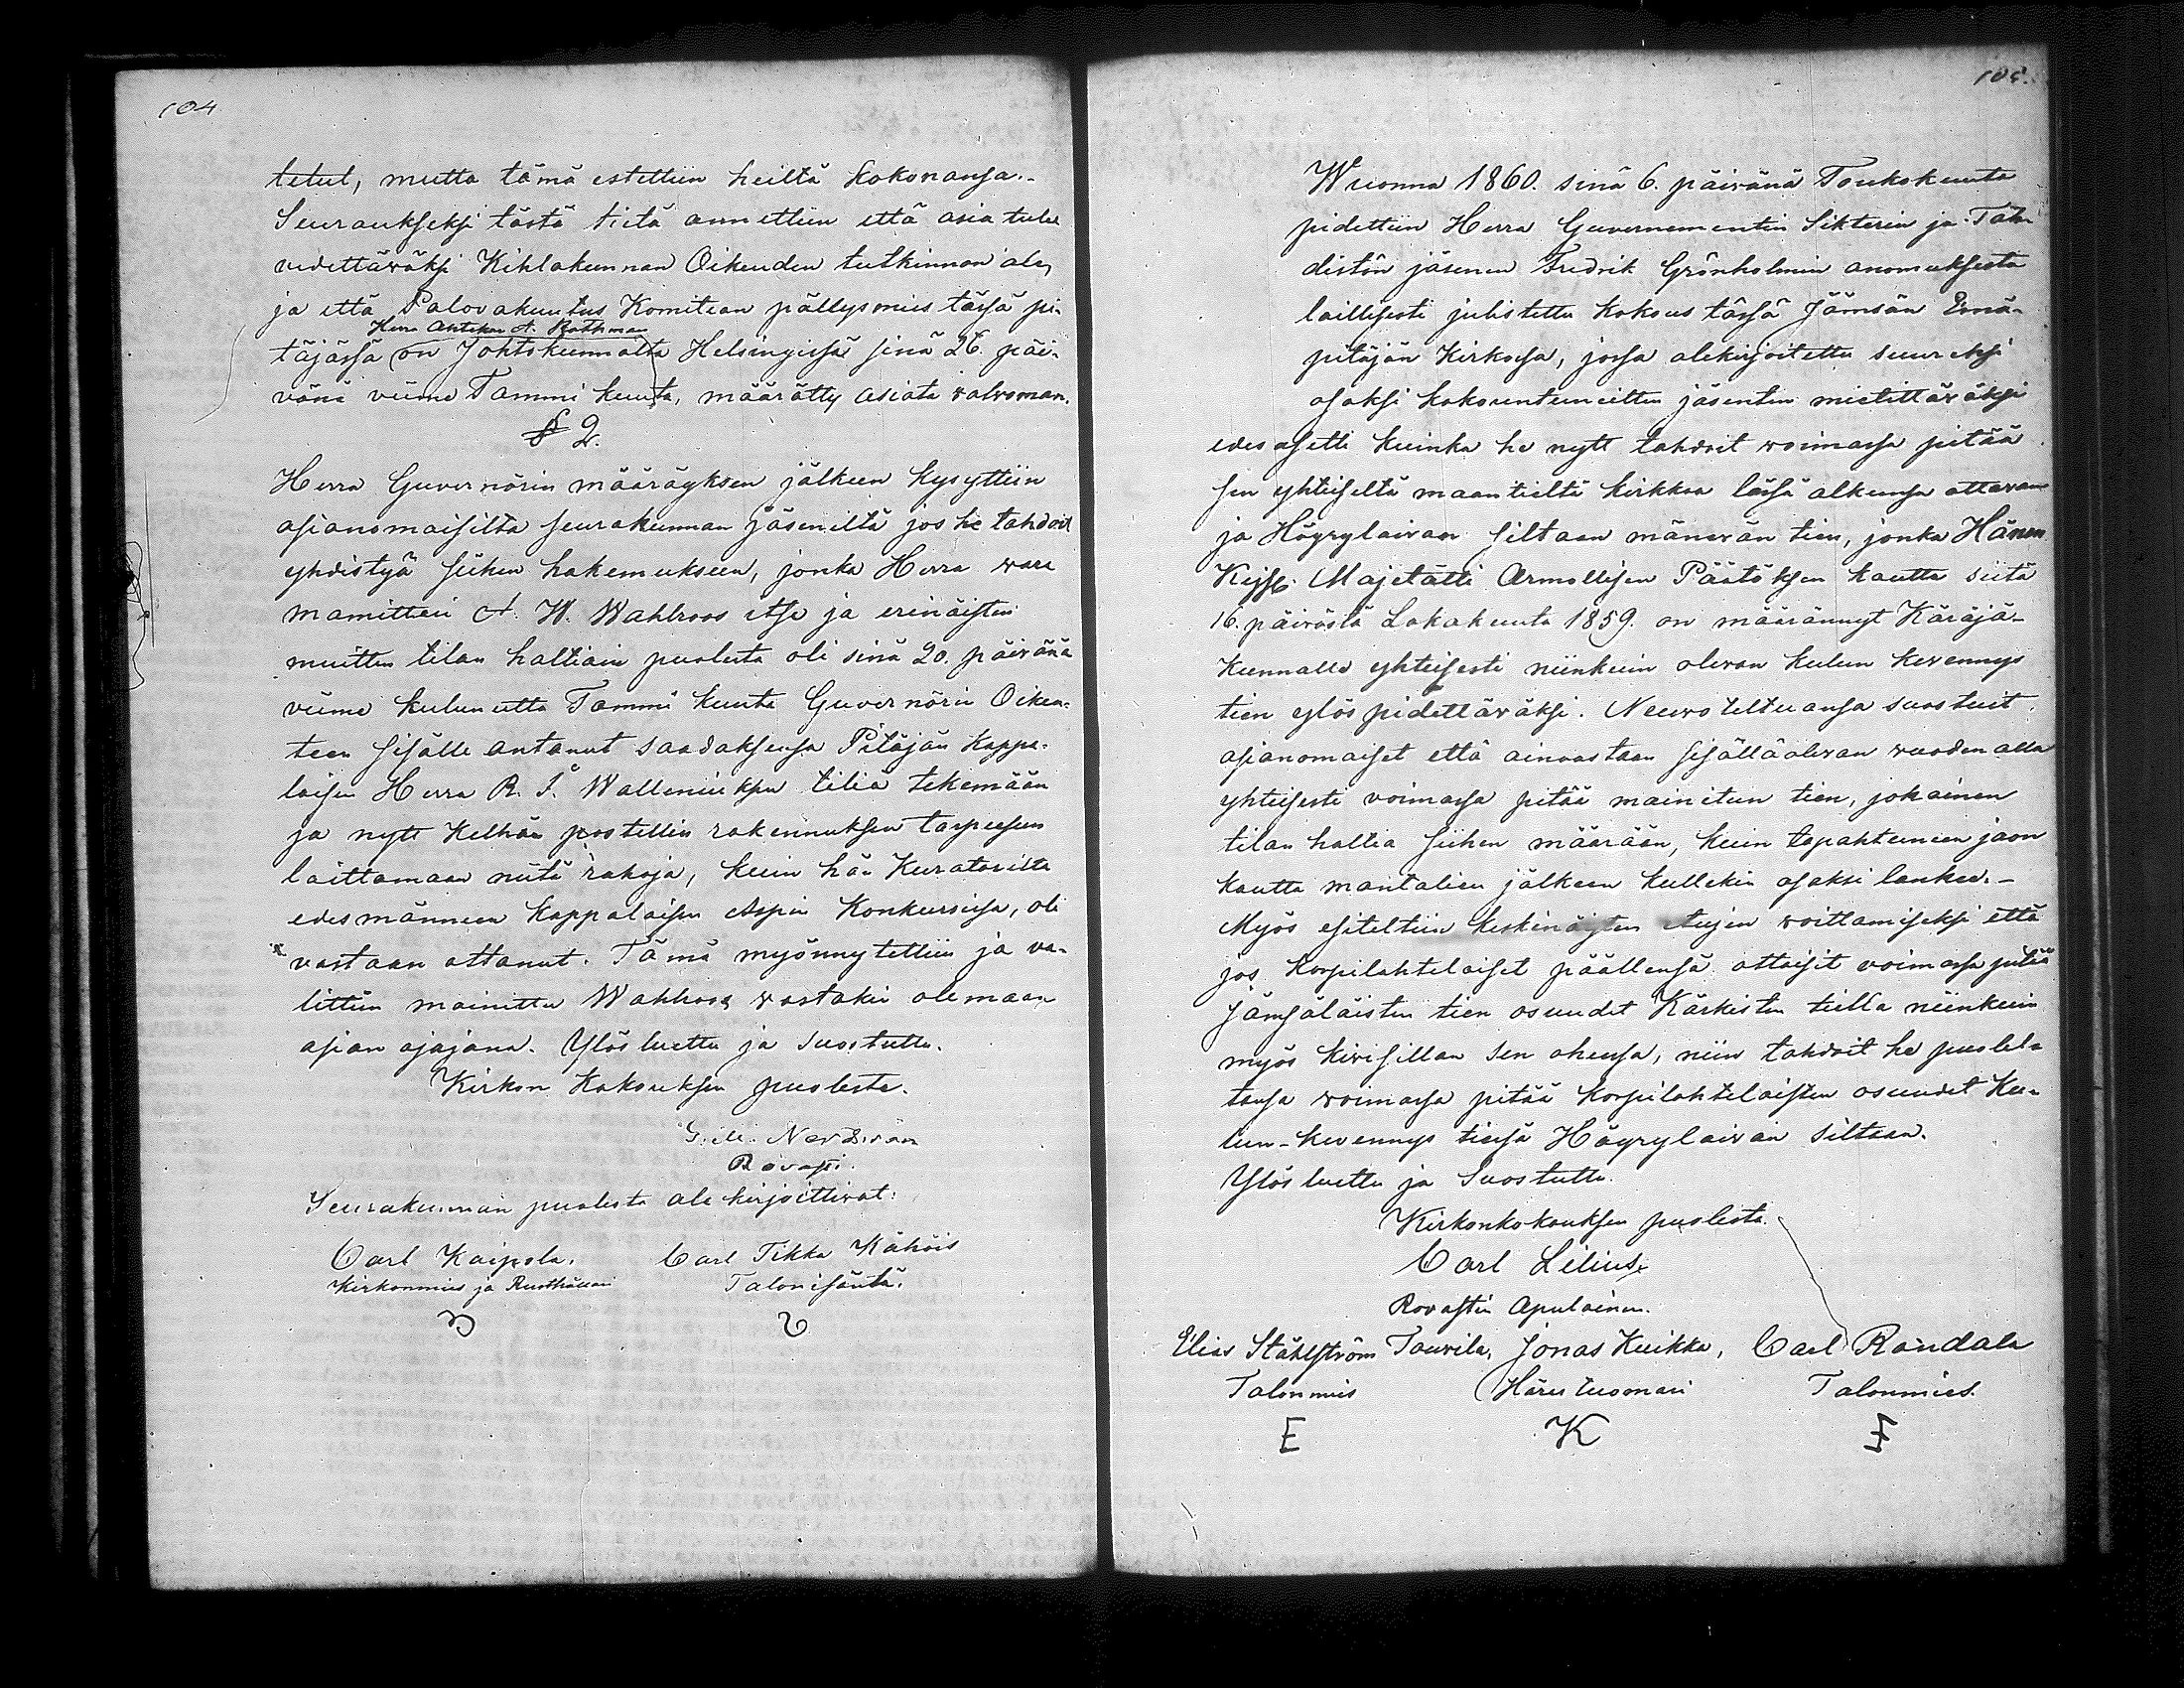 104
tetut, mutta tämä estettiin heiltä kokonansa.-
Seuraukseksi tästä tietä annettiin että asia tulee
vedettäwäksi Kihlakunnan Oikeuden tutkinnon ala,
ja että Palovakuutus Komitean pällysmies tässä pi-
Herra Apteker A. Bäthman
täjässä on Johtokunnalta Helsingissä sinä 26. päi-
vänä viime Tammi kuuta, määrätty asiata walwoman.
§ 2.
Herra Guvernörin määräyksen jälkeen kysyttiin
asianomaisilta seurakunnan jäseniltä jos he tahdoit
yhdistyä siihen hakemukseen, jonka Herra wara
mamitteri A. W. Wahlroos itse ja erinäisten
muitten tilan haltiain puolesta oli sinä 20. päivänä
viime kulunutta Tammi kuuta Guvernörin Oikeu-
teen sisälle antanut saadaksensa Pitäjän Kappa-
laisen Herra R. I. Walleniuksen tiliä tekemään
ja nytt kelhän postellin rakennuksen tarpeesen
laittamaan niitä rahoja, kuin hän Kuratorilta
edesmänneen Kappalaisen Aspin Konkurssissa, oli
vastaan ottanut. Tämä myönnytettiin ja va-
littiin mainittu Wahlroos wastakin olemaan
asian ajajana. Ylösluettu ja suostuttu.
Kirkon Kokouksen puolesta.
G. M. Nordman
Rovasti.
Seurakunnan puolesta ale kirjoittivat:
Carl Kaipola, Carl Tikka Kähöis
Kirkonmies ja Rusthollari Talonisäntä.
105.
Wuonna 1860. sinä 6. päivänä Toukokuuta
pidettiin Herra Guvernementin Sikterin ja Talu-
distôn jäsenen Fredrik Grönholmin anomuksesta
laillisesti julistettu kokous tässä Jämsän Emä-
pitäjän Kirkossa, jossa alekirjoitettu suureksi
osaksi kokountuneitten jäsenten mietittäväksi
edesasetti kuinka he nytt tahdoit woimassa pitää
sen yhteiseltä maantieltä kirkkoa lässä alkunsa ottavan
ja Högrylaivan siltaan mänevän tien, jonka Hänen
Keiss. Majetätti Armollisen Päätöksen kautta siitä
16. päivästä Lokakuuta 1859. on määrännyt Käräjä-
kunnalle yhteisesti niinkuin olevan kulun kevennys
tien ylöspidettäväksi. Neuvoteltuansa suostuit
asianomaiset että ainoastaan sisälläolevan vuoden alla
yhteisesti voimassa pitää mainitun tien, jokainen
tilan haltia siihen määrään, kuin tapahtuneen jaon
kautta mantalien jälkeen kullekin osaksi lankee.-
Myös esiteltiin keskinäisten etujen woittamiseksi että
jos Korpilahtelaiset päällensä ottaisit voimassa pitää
Jämsäläisten tien osuudet Kärkisten tiellä niinkuin
myös kivisillan sen ohessa, niin tahdoit he puolel-
tansa woimassa pitää Korpilahtelaisten osuudet Ku-
lun-kevennys tiessä Högrylaivan siltaan.
Ylösluettu ja Suostuttu.
Kirkonkokouksen puolesta.
Carl Lilius.
Rovastin Apulainen.
Elias Ståhlström Tourila, Jonas Kuikka, Carl Rändala
Talonmies Härestuomari Talonmies.
E K